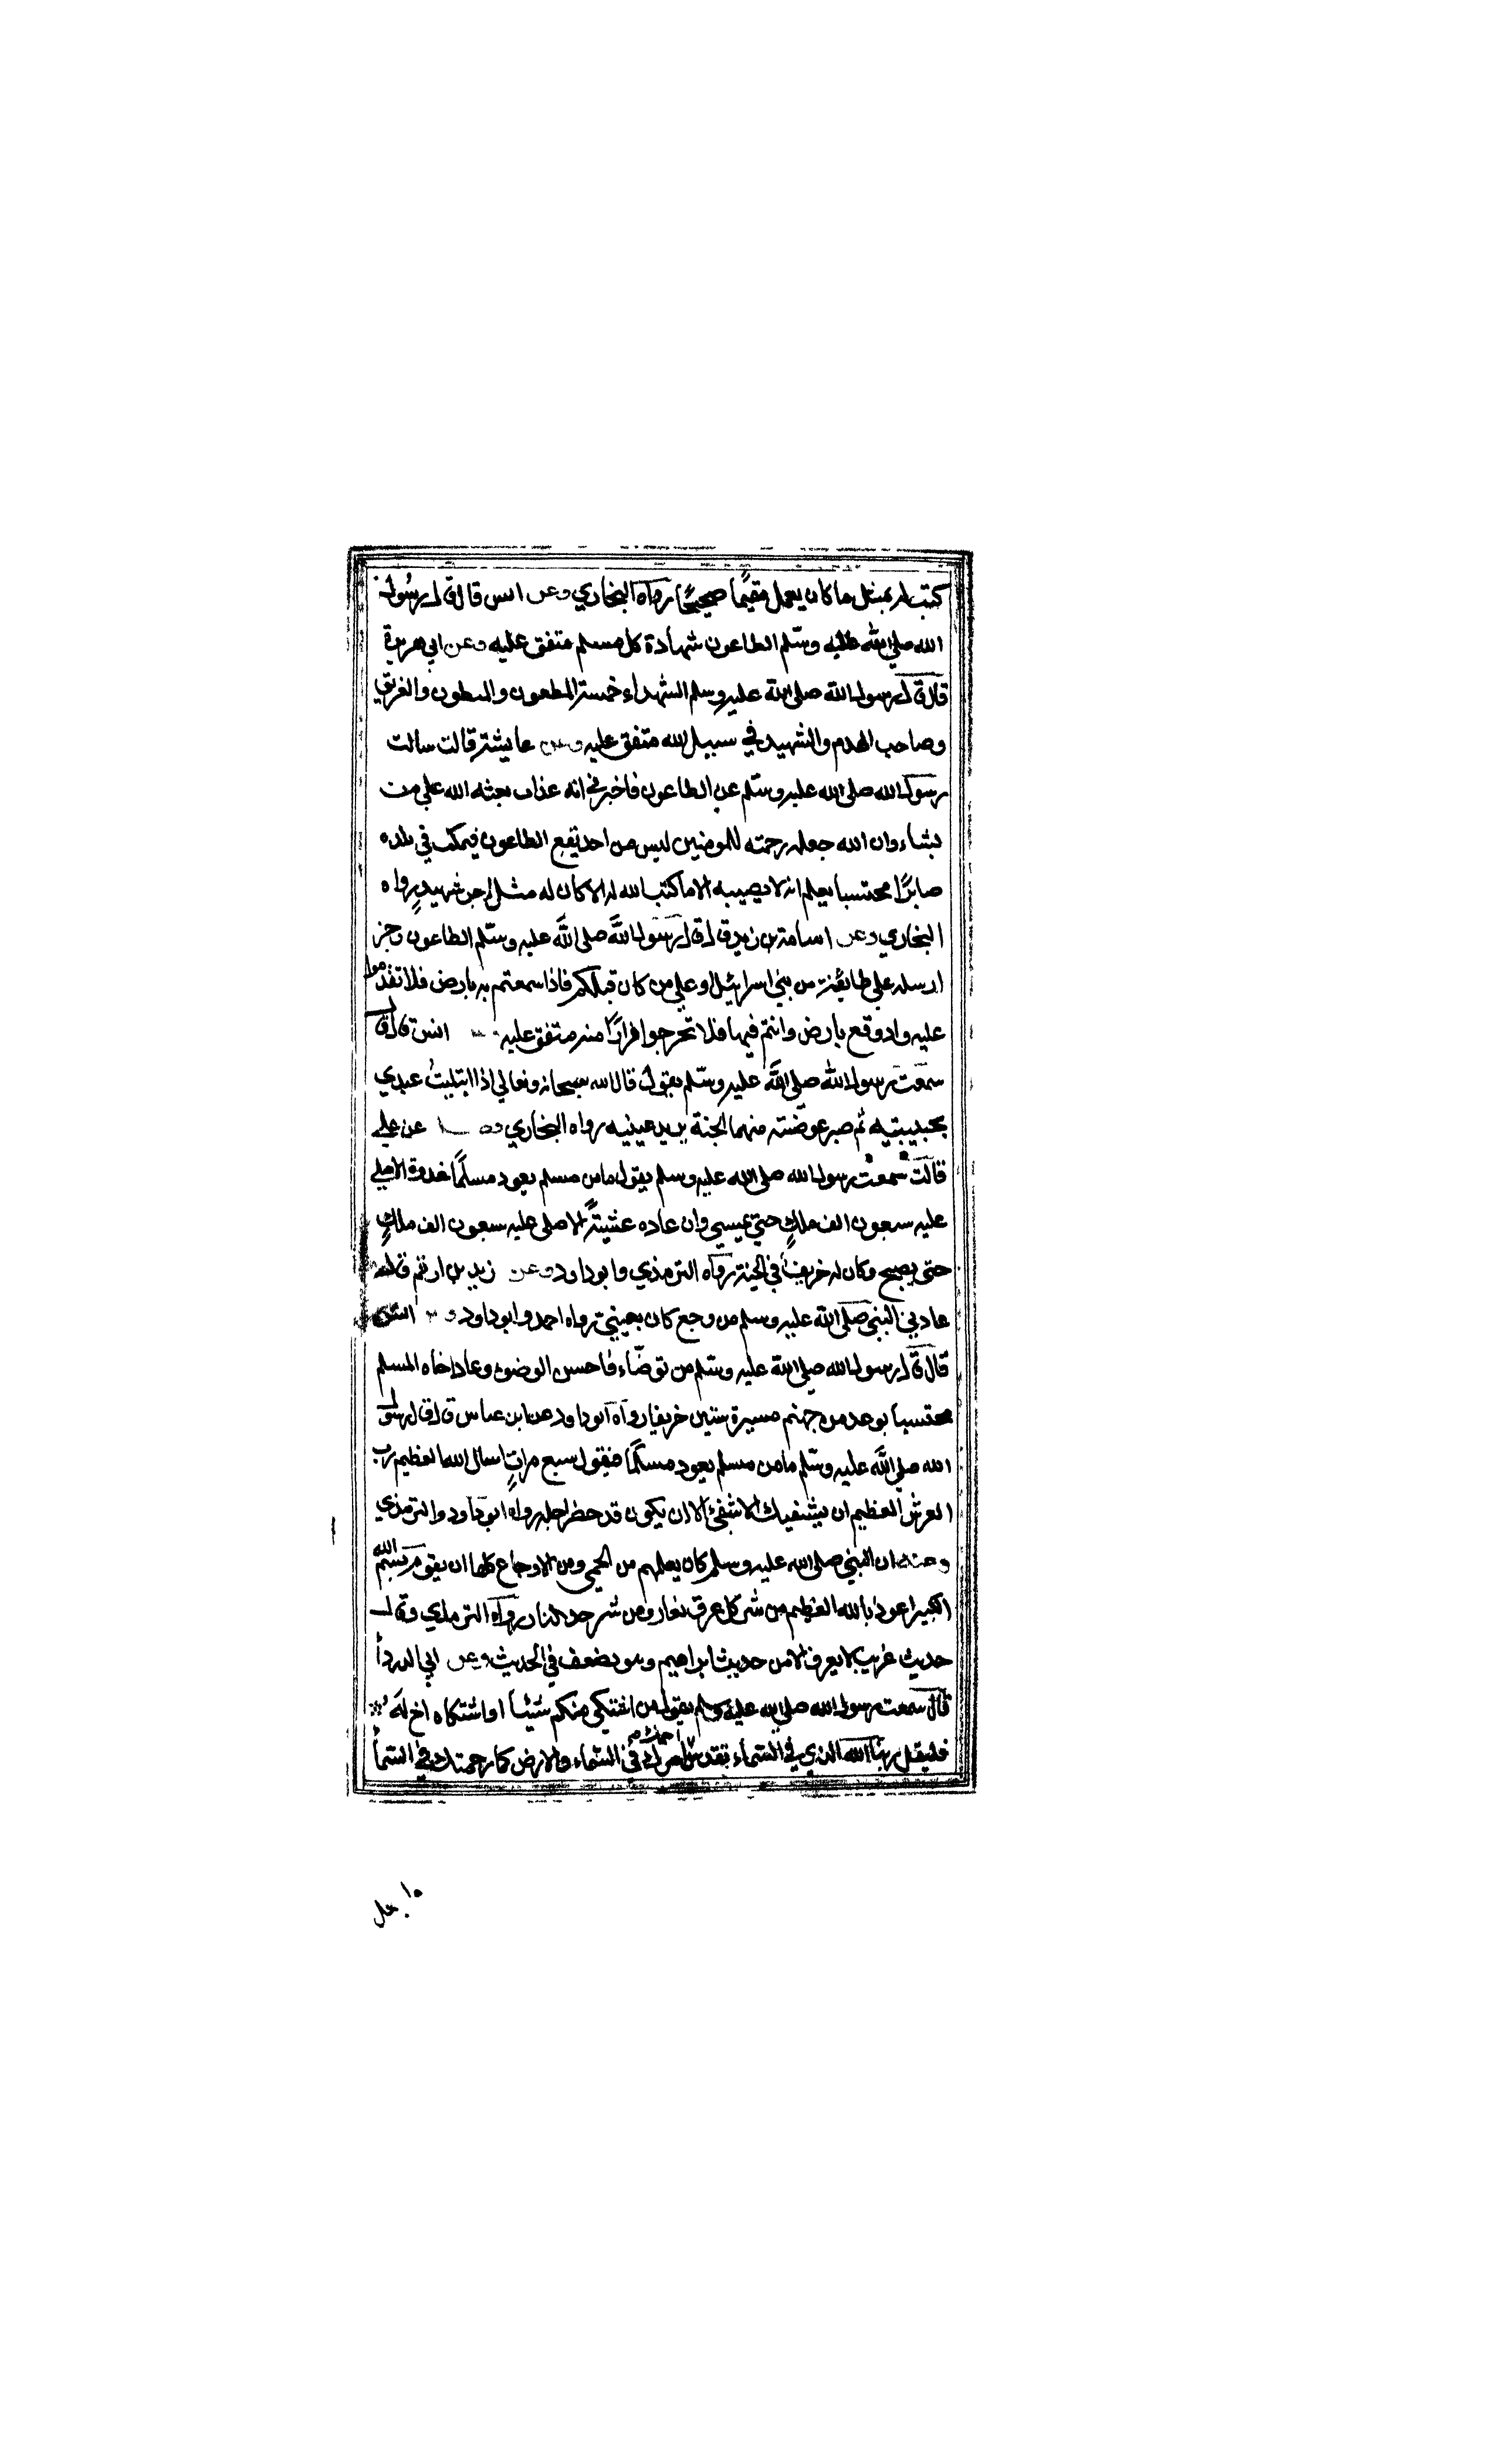 كتب له بمثل ما كان يعمل مقيمًا صحيحًا رواه البخاري وعن انس قال قال رسول
الله صلى الله عليه وسلم الطاعون شهادة كل مسلم متفق عليه وعن ابي هريرة
قال قال رسول الله صلى الله عليه وسلم الشهداء خمسة المطعون والمبطون والغريق
وصاحب الهدم والشهيد في سبيل الله متفق عليه وعن عايشة قالت سالت
رسول الله صلى الله عليه وسلم عن الطاعون فاخبرني انه عذاب يبعثه الله علي من
يشاء وان الله جعله رحمة للمومنين ليس من احد يقع الطاعون فيمكث في بلده
صابرًا محتسبا يعلم انه لا يصيبه الا ما كتب الله له الا كان له مثل اجر شهيدٍ رواه
البخاري وعن اسامة بن زيد قال قال رسول الله صلى الله عليه وسلم الطاعون رجز
ارسل علي طايفة من بني اسرائيل او علي من كان قبلكم فاذا سمعتم به بارض فلا تقدموا
عليه واذ وقع بارض وانتم فيها فلا تخرجوا فرارًا منه متفق عليه انس قال قال
سمعت رسول الله صلى الله عليه وسلم يقول قال الله سبحانه وتعالي اذا ابتليتُ عبدي
بحبيبتيه ثم صبر عوضته منهما الجنة يريد عينيه رواه البخاري عن علي
قالت سمعت رسول الله صلى الله عليه وسلم يقول ما من مسلم يعود مسلمًا غدوة الا صلي
عليه سبعون الف ملكٍ حتي يمسي وان عاده عشيةً الا صلى عليه سبعون الف ملكٍ
حتى يصبح وكان له خريف في الجنة رواه الترمذي وابو داود وعن زيد بن ارقم قال
عادني النبي صلى الله عليه وسلم من وجع كان بعيني رواه احمد وابو داود انس
قال قال رسول الله صلى الله عليه وسلم من توضاء فاحسن الوضوء وعاد اخاه المسلم
محتسبا بوعد من جهنم مسيرة ستين خريفا رواه ابو داود عن ابن عباس قال قال رسول
الله صلى الله عليه وسلم ما من مسلم يعود مسلمًا فيقول سبع مراتٍ اسال الله العظيم رب
العرش العظيم ان يشفيك الا شفي الا ان يكون قد حضر اجله رواه ابو داود والترمذي
وعنه ان النبي صلى الله عليه وسلم كان يعلمهم من الحمى ومن الاوجاع كلها ان يقول بسم الله
الكبير اعوذ بالله العظيم من شر كل عرق نعار ومن شر حر النار رواه الترمذي وقال
حديث غريب لا يعرف الا من حديث ابراهيم وهو يضعف في الحديث وعن ابي الدرداء
قال سمعت رسول الله صلى الله عليه وسلم يقول من اشتكي منكم شيئا او اشتكاه اخ له
فليقل ربنا الله الذي في السماء تقدس اسمك امرك في السماء والارض كما رحمتك في السماء